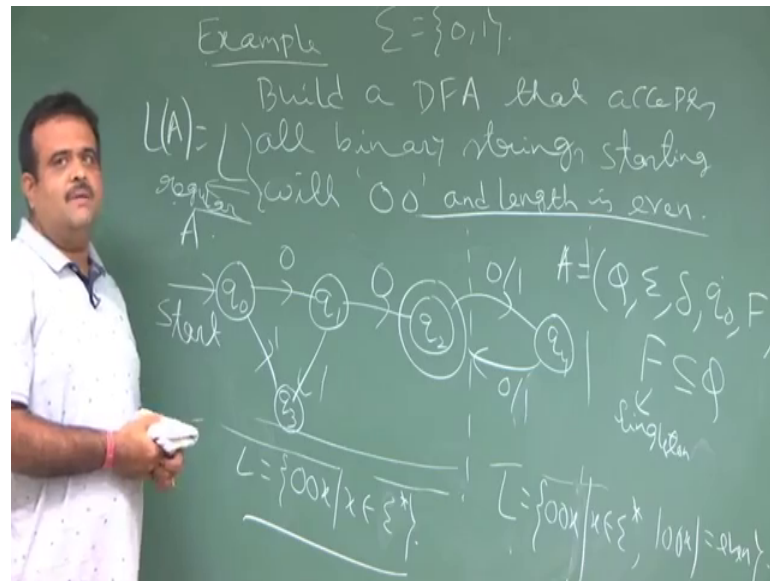 Example Σ = {0,1}.
Build a DFA that accepts
L(A) = L all binary strings starting
regular with '00' and length is even.
A
start q₀ 0 q₁ 0 q₂ 0/1 q₄ 0/1
1 1 q₃
A = (Q, Σ, δ, q₀, F
F ⊆ Q
singleton
L = {00x | x ∈ Σ*}.
L = {00x | x ∈ Σ*, |00x| = even}.